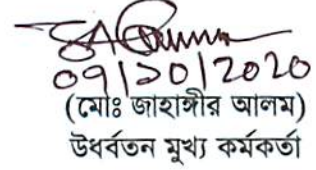 ০৭/১০/২০২০
(মোঃ জাহাঙ্গীর আলম)
উধর্বতন মুখ্য কর্মকর্তা